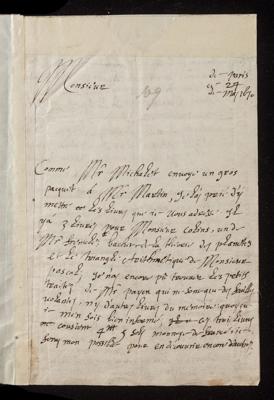 de paris
Monsieur 24
de may 1670
Comme Mr Michelet envoye un gros
pacquet à Mr Martin, Je l'ai prié d'y
mettre les livres que je vous adresse. Il
y a 3 livres pour Monsieur Colins, un de
Mr des planettes
et le triangle Arithmetique de Monsieur
pascal, Je n'ay encore pû trouver les petits
traitez de Mr payen qui ne sont que des feuilles
volantes, n'y d'autres livres du memoire, quoyque
je m'en sois bien informé, ces trois livres
ont cousté 4 monnoye de france, je
feray mon possible pour en découvrir encore d'autres